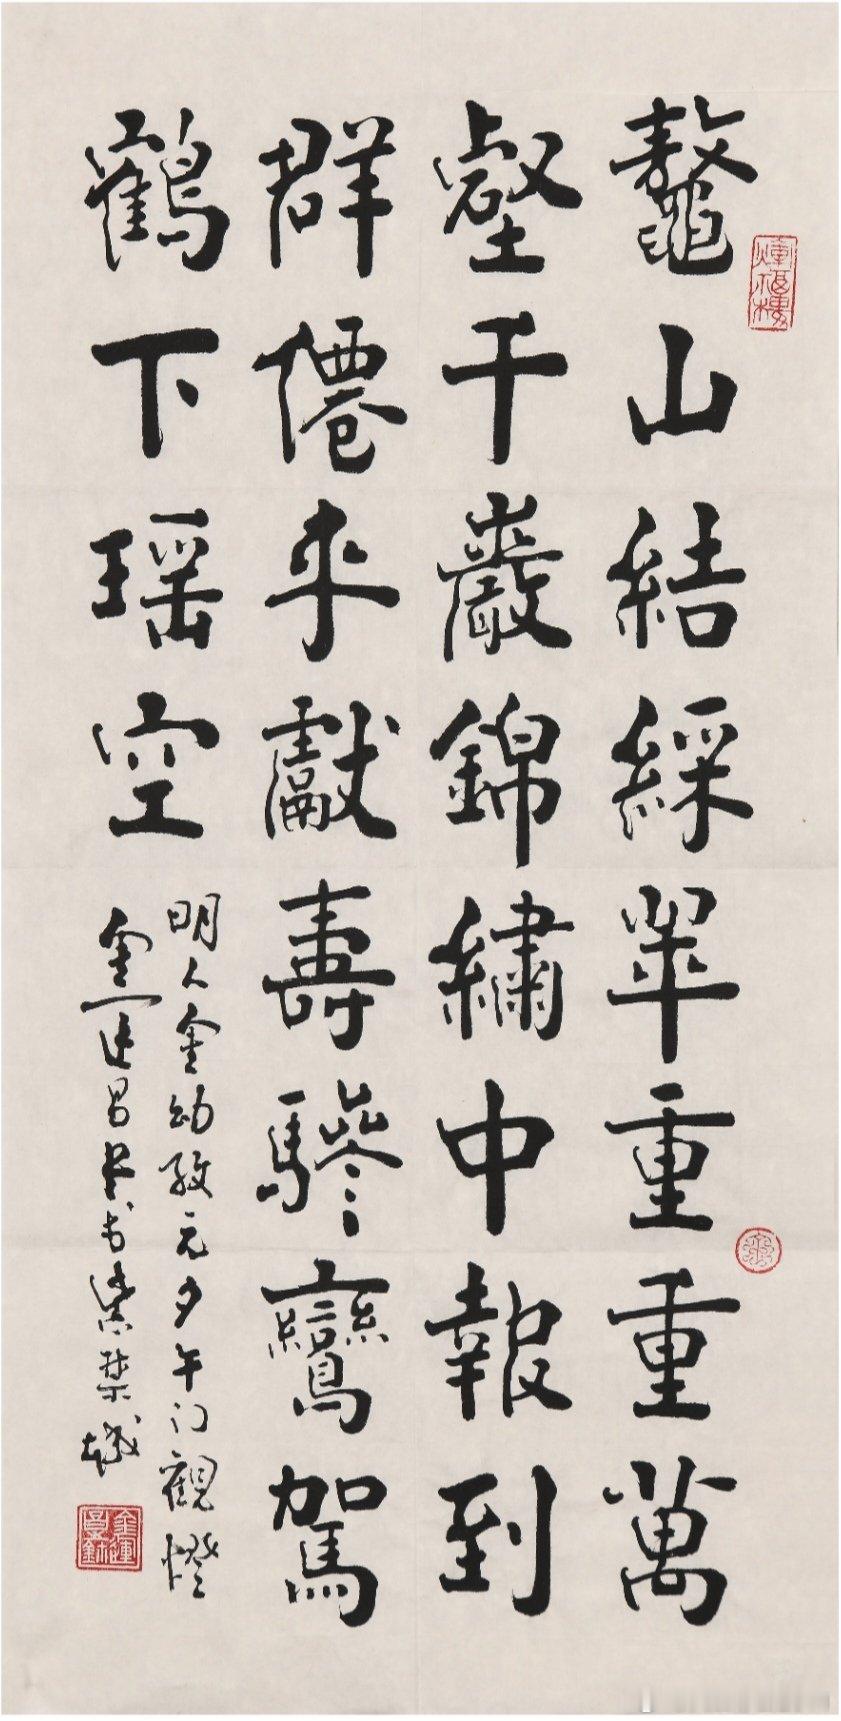 鼇山結綵翠重重萬
壑千巖錦繡中報到
群僊來獻壽驂鸞駕
鶴下瑶空
明人金幼孜元夕午门觀燈
金运昌书紫禁城
金運昌鉨